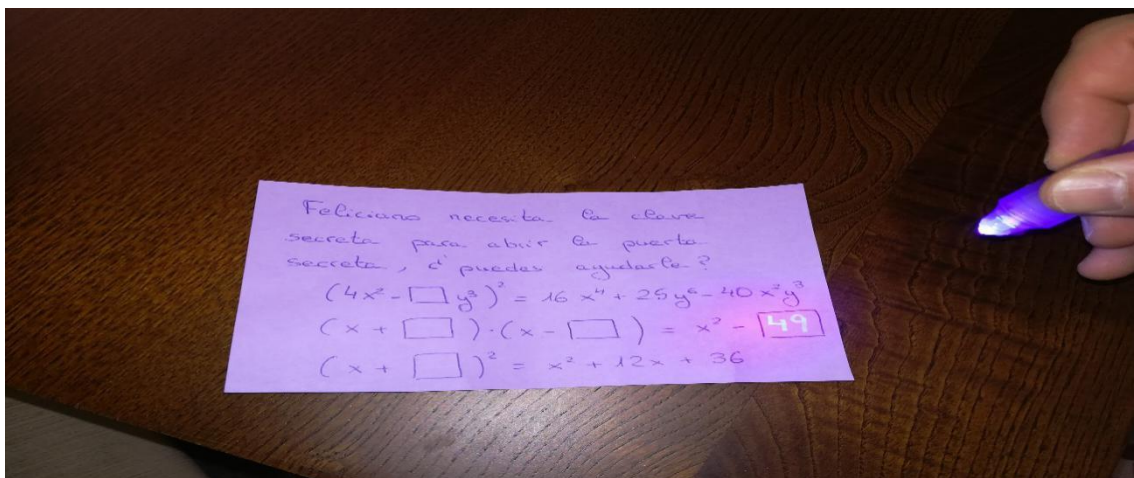 Feliciano necesita la clave
secreta para abrir la puerta
secreta, ¿puedes ayudarle?
(4x² - □ y³)² = 16x⁴ + 25y⁶ - 40x²y³
(x + □)·(x - □) = x² - 49
(x + □)² = x² + 12x + 36